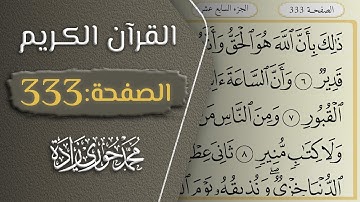 القرآن الكريم
الصفحة:333
محمد حوري زادة
الصفحـة 333
الجزء السابع عشر
ذَٰلِكَ بِأَنَّ ٱللَّهَ هُوَ ٱلْحَقُّ
قَدِيرٌ ٦ وَأَنَّ ٱلسَّاعَةَ
ٱلْقُبُورِ ٧ وَمِنَ ٱلنَّاسِ
وَلَا كِتَٰبٍ مُّنِيرٍ ٨ ثَانِىَ
ٱلدُّنْيَا خِزْىٌ وَنُذِيقُهُۥ يَوْمَ